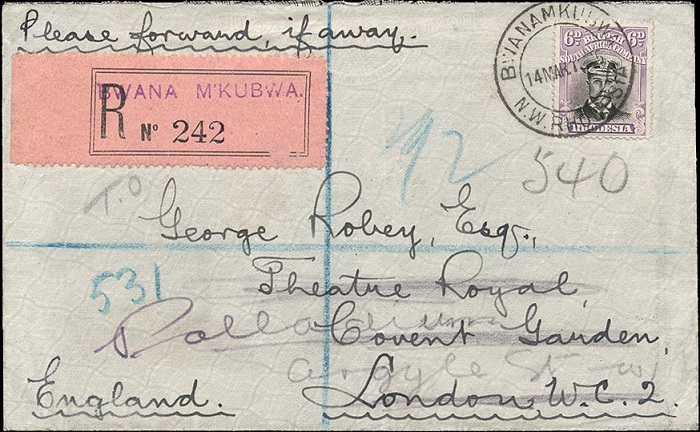 Please forward, if away.
BWANAMKUBWA
14 MAR
N.W. RHODESIA
6D BRITISH 6D
SOUTH AFRICA COMPANY
RHODESIA
BWANA M'KUBWA.
R No 242
540
T.O
George Robey, Esq.,
531
Theatre Royal,
Palladium
Covent Garden,
Argyle St W
England. London, W.C.2.